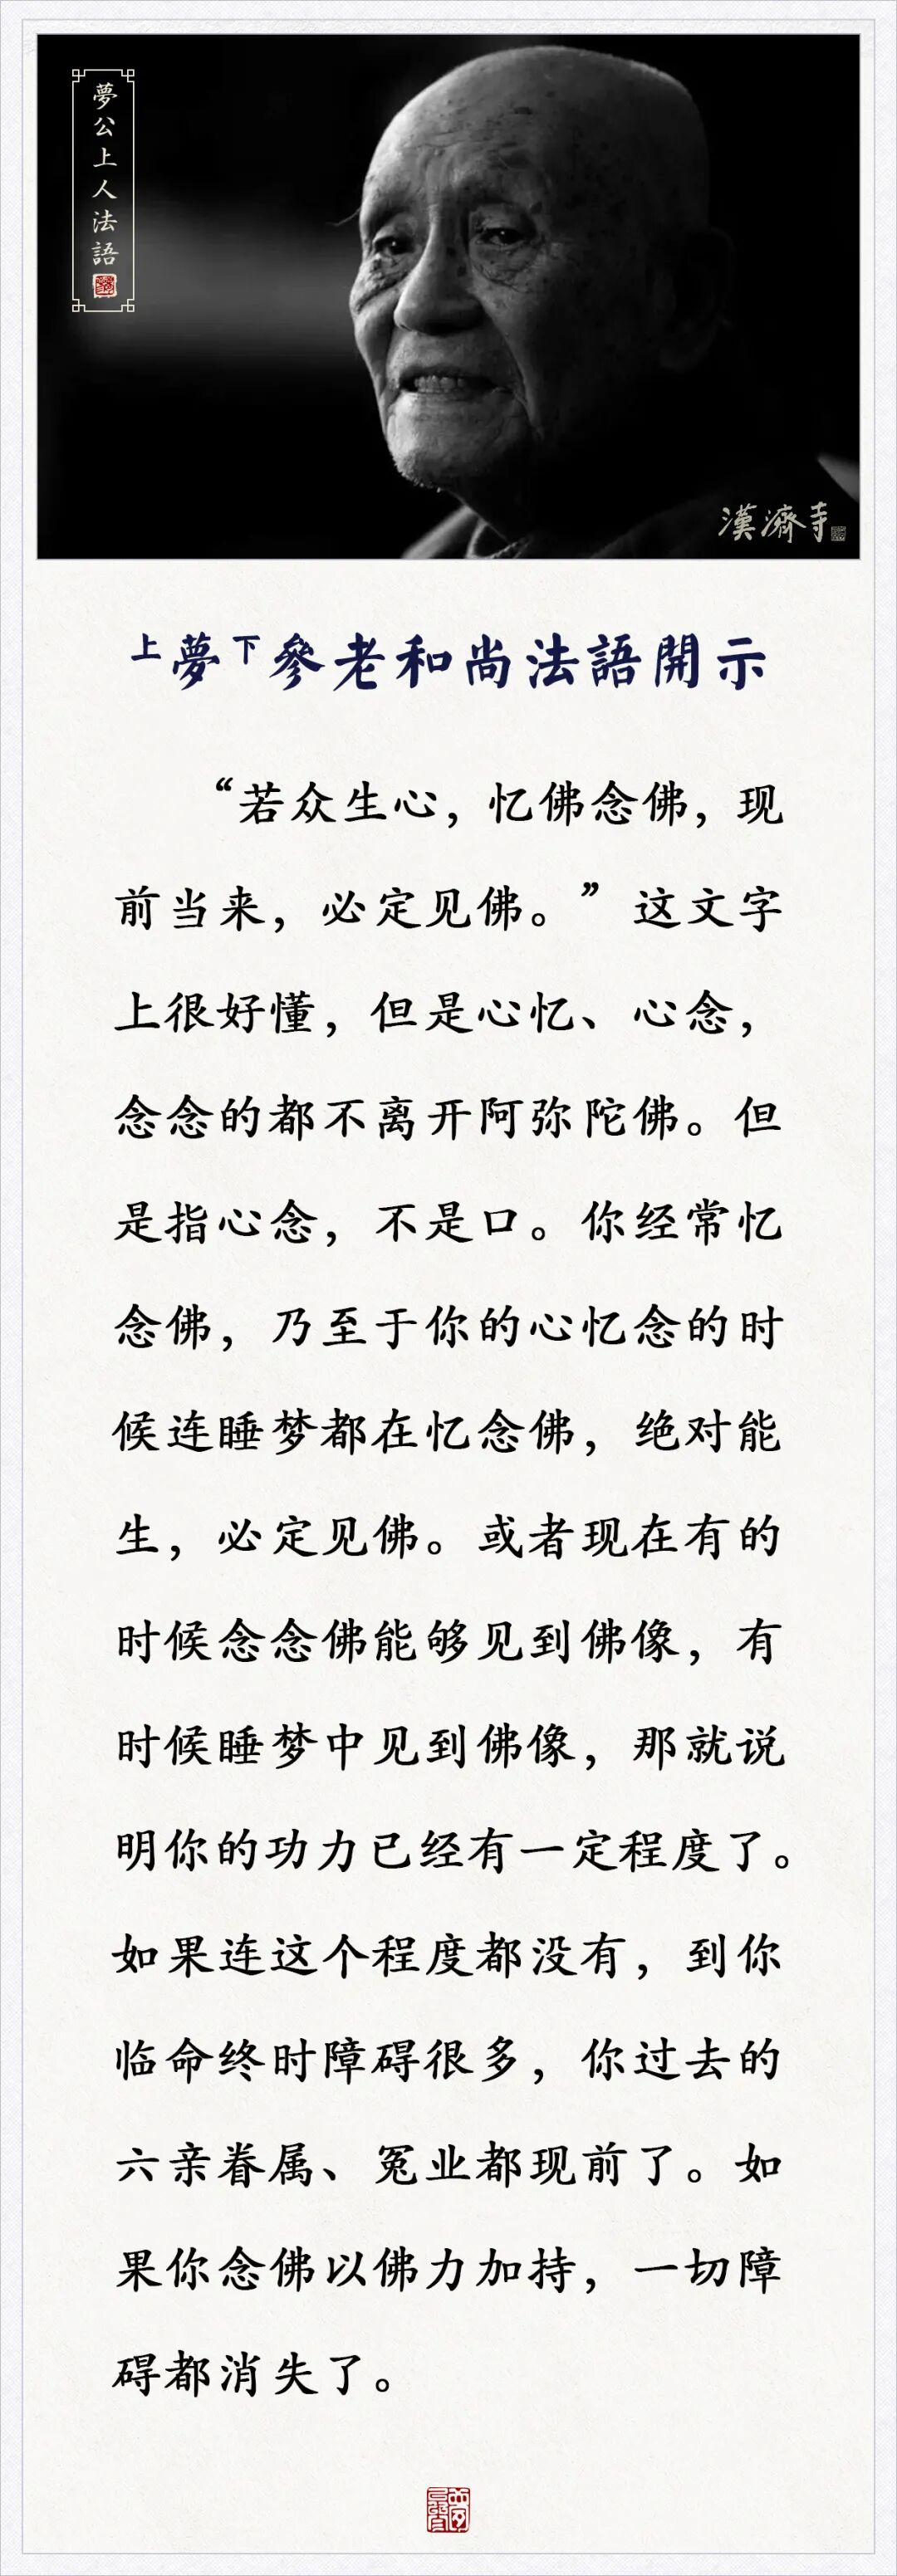 夢公上人法語
漢濟寺
上夢下參老和尚法語開示
“若众生心，忆佛念佛，现
前当来，必定见佛。”这文字
上很好懂，但是心忆、心念，
念念的都不离开阿弥陀佛。但
是指心念，不是口。你经常忆
念佛，乃至于你的心忆念的时
候连睡梦都在忆念佛，绝对能
生，必定见佛。或者现在有的
时候念念佛能够见到佛像，有
时候睡梦中见到佛像，那就说
明你的功力已经有一定程度了。
如果连这个程度都没有，到你
临命终时障碍很多，你过去的
六亲眷属、冤业都现前了。如
果你念佛以佛力加持，一切障
碍都消失了。